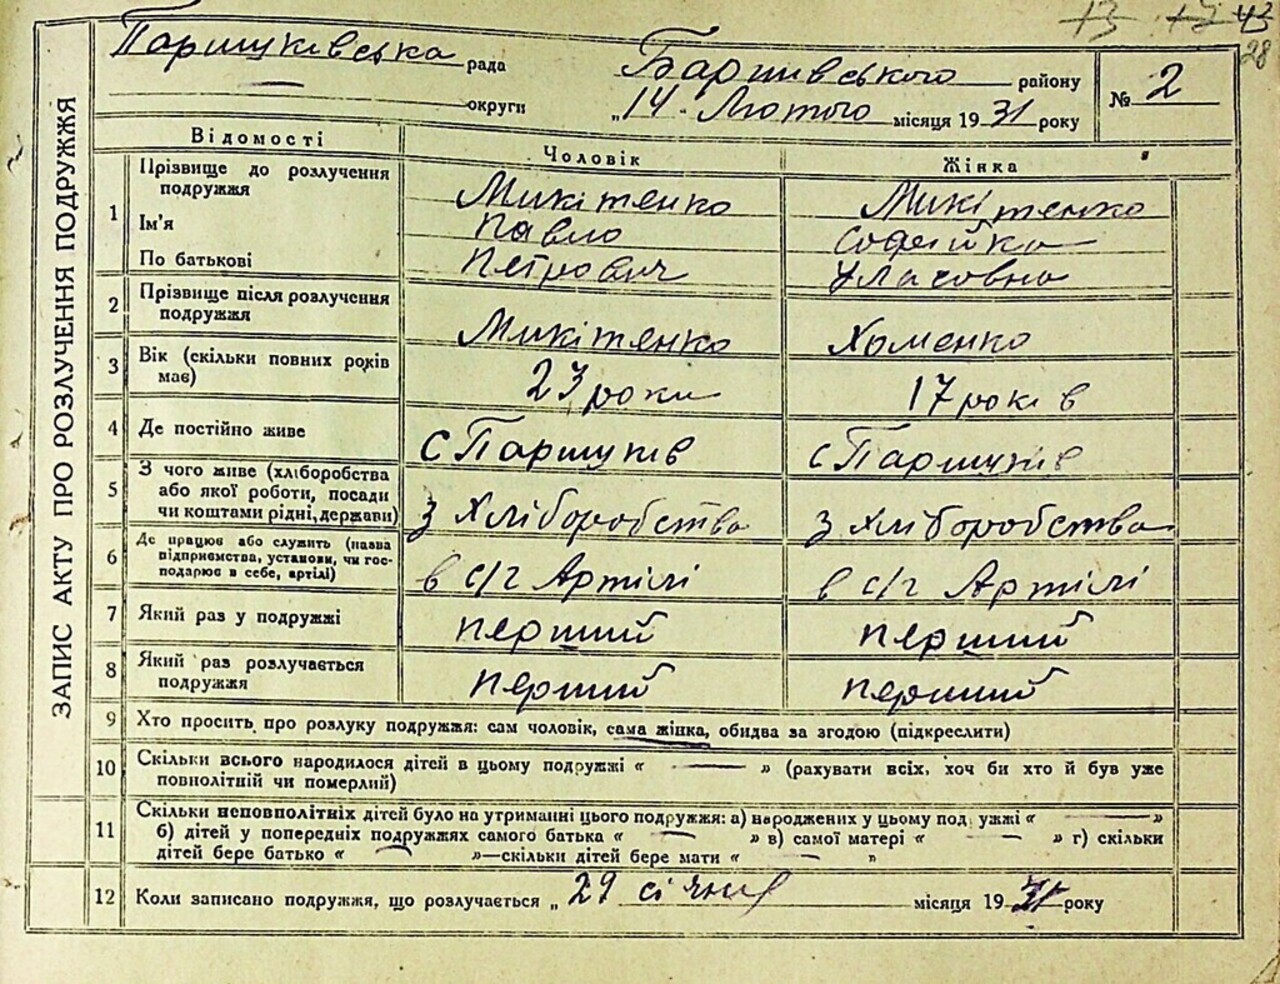 13 12 43
28
Паришківська рада
Баришівського району
округи
„14" Лютого місяця 1931 року
№ 2
ЗАПИС АКТУ ПРО РОЗЛУЧЕННЯ ПОДРУЖЖЯ
Відомості
Чоловік
Жінка
1 Прізвище до розлучення подружжя
Микітенко
Микітенко
Ім'я
Павло
Софійка
По батькові
Петрович
Уласовна
2 Прізвище після розлучення подружжя
Микітенко
Хоменко
3 Вік (скільки повних років має)
23 роки
17 років
4 Де постійно живе
с Паришків
с Паришків
5 З чого живе (хліборобства
або якої роботи, посади
чи коштами рідні, держави)
З Хліборобства
З Хліборобства
6 Де працює або служить (назва
підприємства, установи, чи гос-
подарює в себе, артілі)
в с/г Артілі
в с/г Артілі
7 Який раз у подружжі
перший
перший
8 Який раз розлучається
подружжя
перший
перший
9 Хто просить про розлуку подружжя: сам чоловік, сама жінка, обидва за згодою (підкреслити)
10 Скільки всього народилося дітей в цьому подружжі « — » (рахувати всіх, хоч би хто й був уже
повнолітній чи померлий)
11 Скільки неповнолітніх дітей було на утриманні цього подружжя: а) народжених у цьому подружжі « — »
б) дітей у попередніх подружжях самого батька « — » в) самої матері « — » г) скільки
дітей бере батько « — »—скільки дітей бере мати « — »
12 Коли записано подружжя, що розлучається „29 січня місяця 1931 року